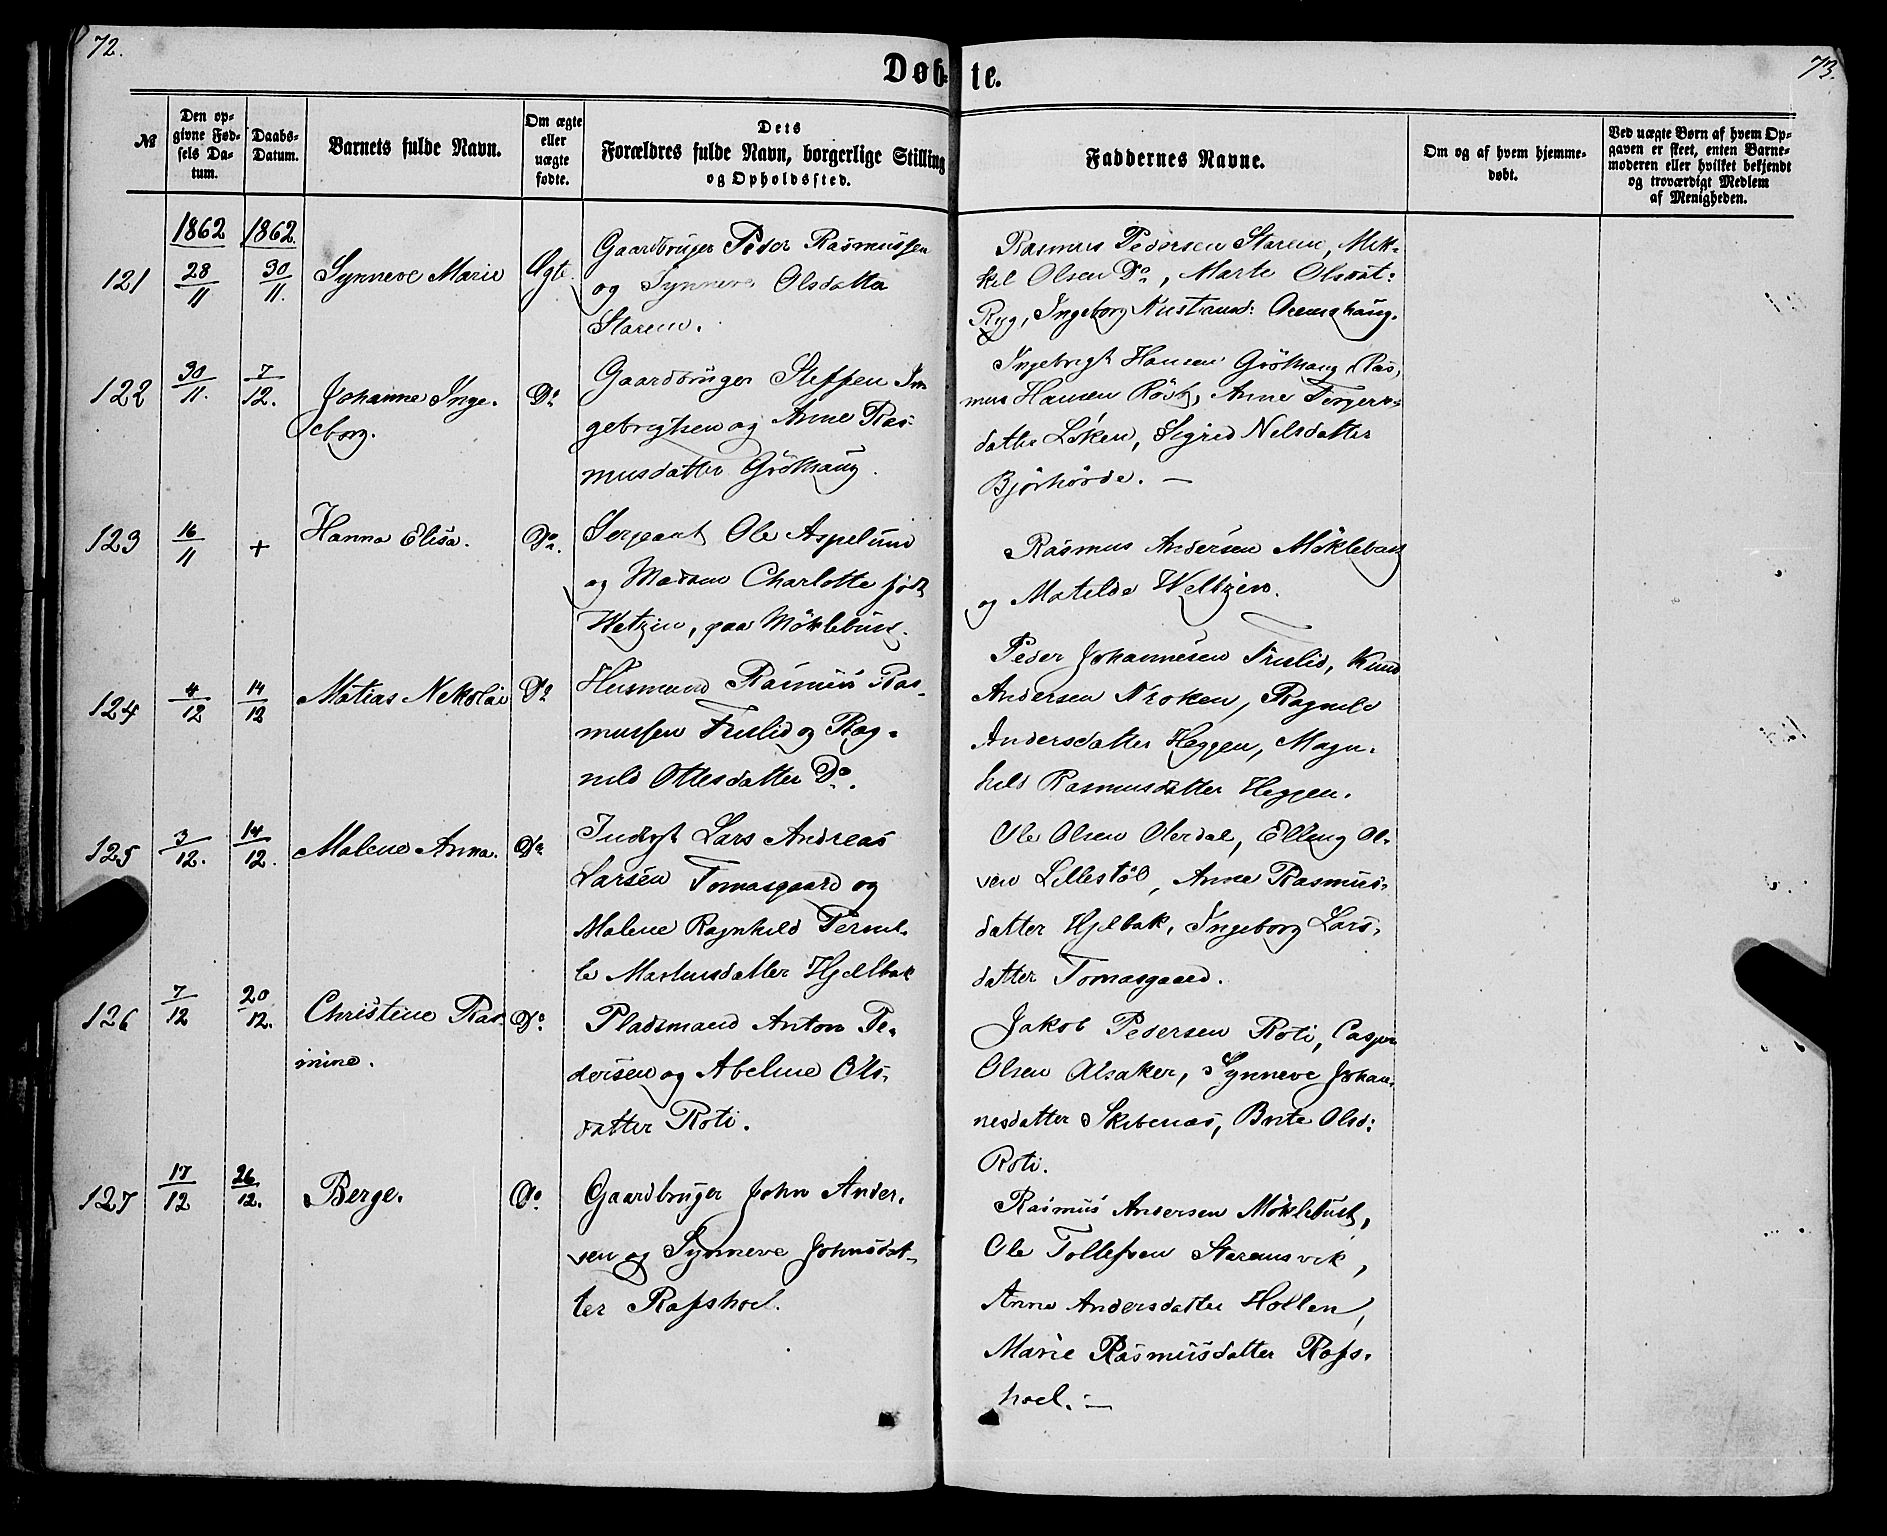 72.
73.
Døbte.
№
Den op-
givne Fød-
sels Da-
tum.
Daabs-
Datum.
Barnets fulde Navn.
Om ægte
eller
uægte
fødte.
Dets
Forældres fulde Navn, borgerlige Stilling
og Opholdssted.
Faddernes Navne.
Om og af hvem hjemme-
døbt.
Ved uægte Børn af hvem Op-
gaven er skeet, enten Barne-
moderen eller hvilket bekjendt
og troværdigt Medlem
af Menigheden.
1862 1862
121 28/11 30/11. Synneve Marie Ægte
Gaardbruger Peder Rasmussen
og Synneve Olsdatter
Starem.
Rasmus Pedersen Starem, Mik-
kel Olsen Do, Marte Olsdat:
Ryg, Ingeborg
122 30/11. 7/12. Johanne Inge-
borg. Do
Gaardbruger Steffen In
gebrigtsen og Anne Ras-
musdatter Gröthaug.
Ingebrigt Hansen Gröthaug, Ras,
mus Hansen Anne
datter Löken, Sigrid Nilsdatter
Björhövde. —
123 16/11 + Hanna Elisa. Do.
Sergeant Ole Aspelund
og Madam Charlotte født
Wetzin, paa Möklebust.
Rasmus Andersen Möklebust
og Matilde Weltzin.
124 4/12 14/12 Matias Nikolai Do
Husmand Rasmus Ras-
mussen Fuslid og Rag-
nild Ottesdatter Do.
Peder Johannesen Fuslid, Knud
Andersen Ragnild
Andersdatter Heggen, Magn-
hild Rasmusdatter Heggen.
125 3/12. 14/12. Malene Anna. Do
Lars Andreas
Larsen Tomasgaard og
Malene Ragnhild Pernil-
le Martinsdatter Hjelbak
Ole Olsen Overdal, Elling Ol-
sen Lillestöl, Anne Rasmus-
datter Hjelbak, Ingeborg Lars-
datter Tomasgaard.
126 7/12 20/12. Christine Ras-
mine. Do.
Pladsmand Anton Pe-
dersen og Abeline Ols-
datter Roti.
Jakob Pedersen Roti, Casper
Olsen Alsaker, Synneve Johan-
nesdatter Skibenes, Brite Olsd:
Roti.
127 17/12 26/12. Berge. Do.
Gaardbruger John Ander-
sen og Synneve Johnsdat-
ter Rafshoel.
Rasmus Andersen Möklebust,
Ole Tollefsen Staremsvik,
Anne Andersdatter Hollen,
Marie Rasmusdatter Rafs-
hoel. —